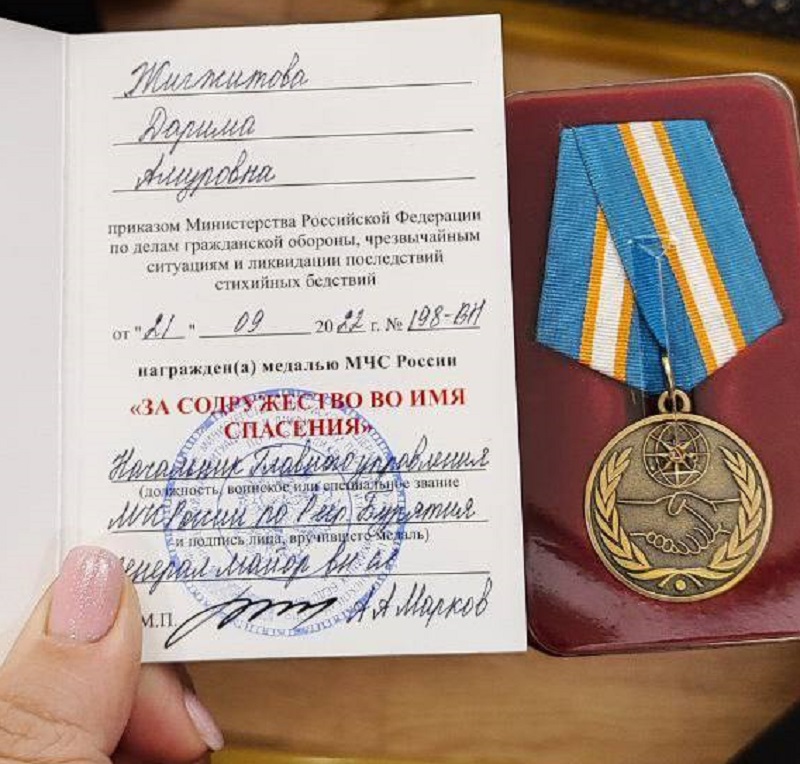 Жигжитова
Дарима
Амуровна
приказом Министерства Российской Федерации
по делам гражданской обороны, чрезвычайным
ситуациям и ликвидации последствий
стихийных бедствий
от "21" 09 2022 г. № 198-ВН
награжден(а) медалью МЧС России
«ЗА СОДРУЖЕСТВО ВО ИМЯ
СПАСЕНИЯ»
Начальник Главного управления
(должность, воинское или специальное звание
МЧС России по Респ Бурятия
и подпись лица, вручившего медаль)
генерал майор вн сл
М.П. А А Марков